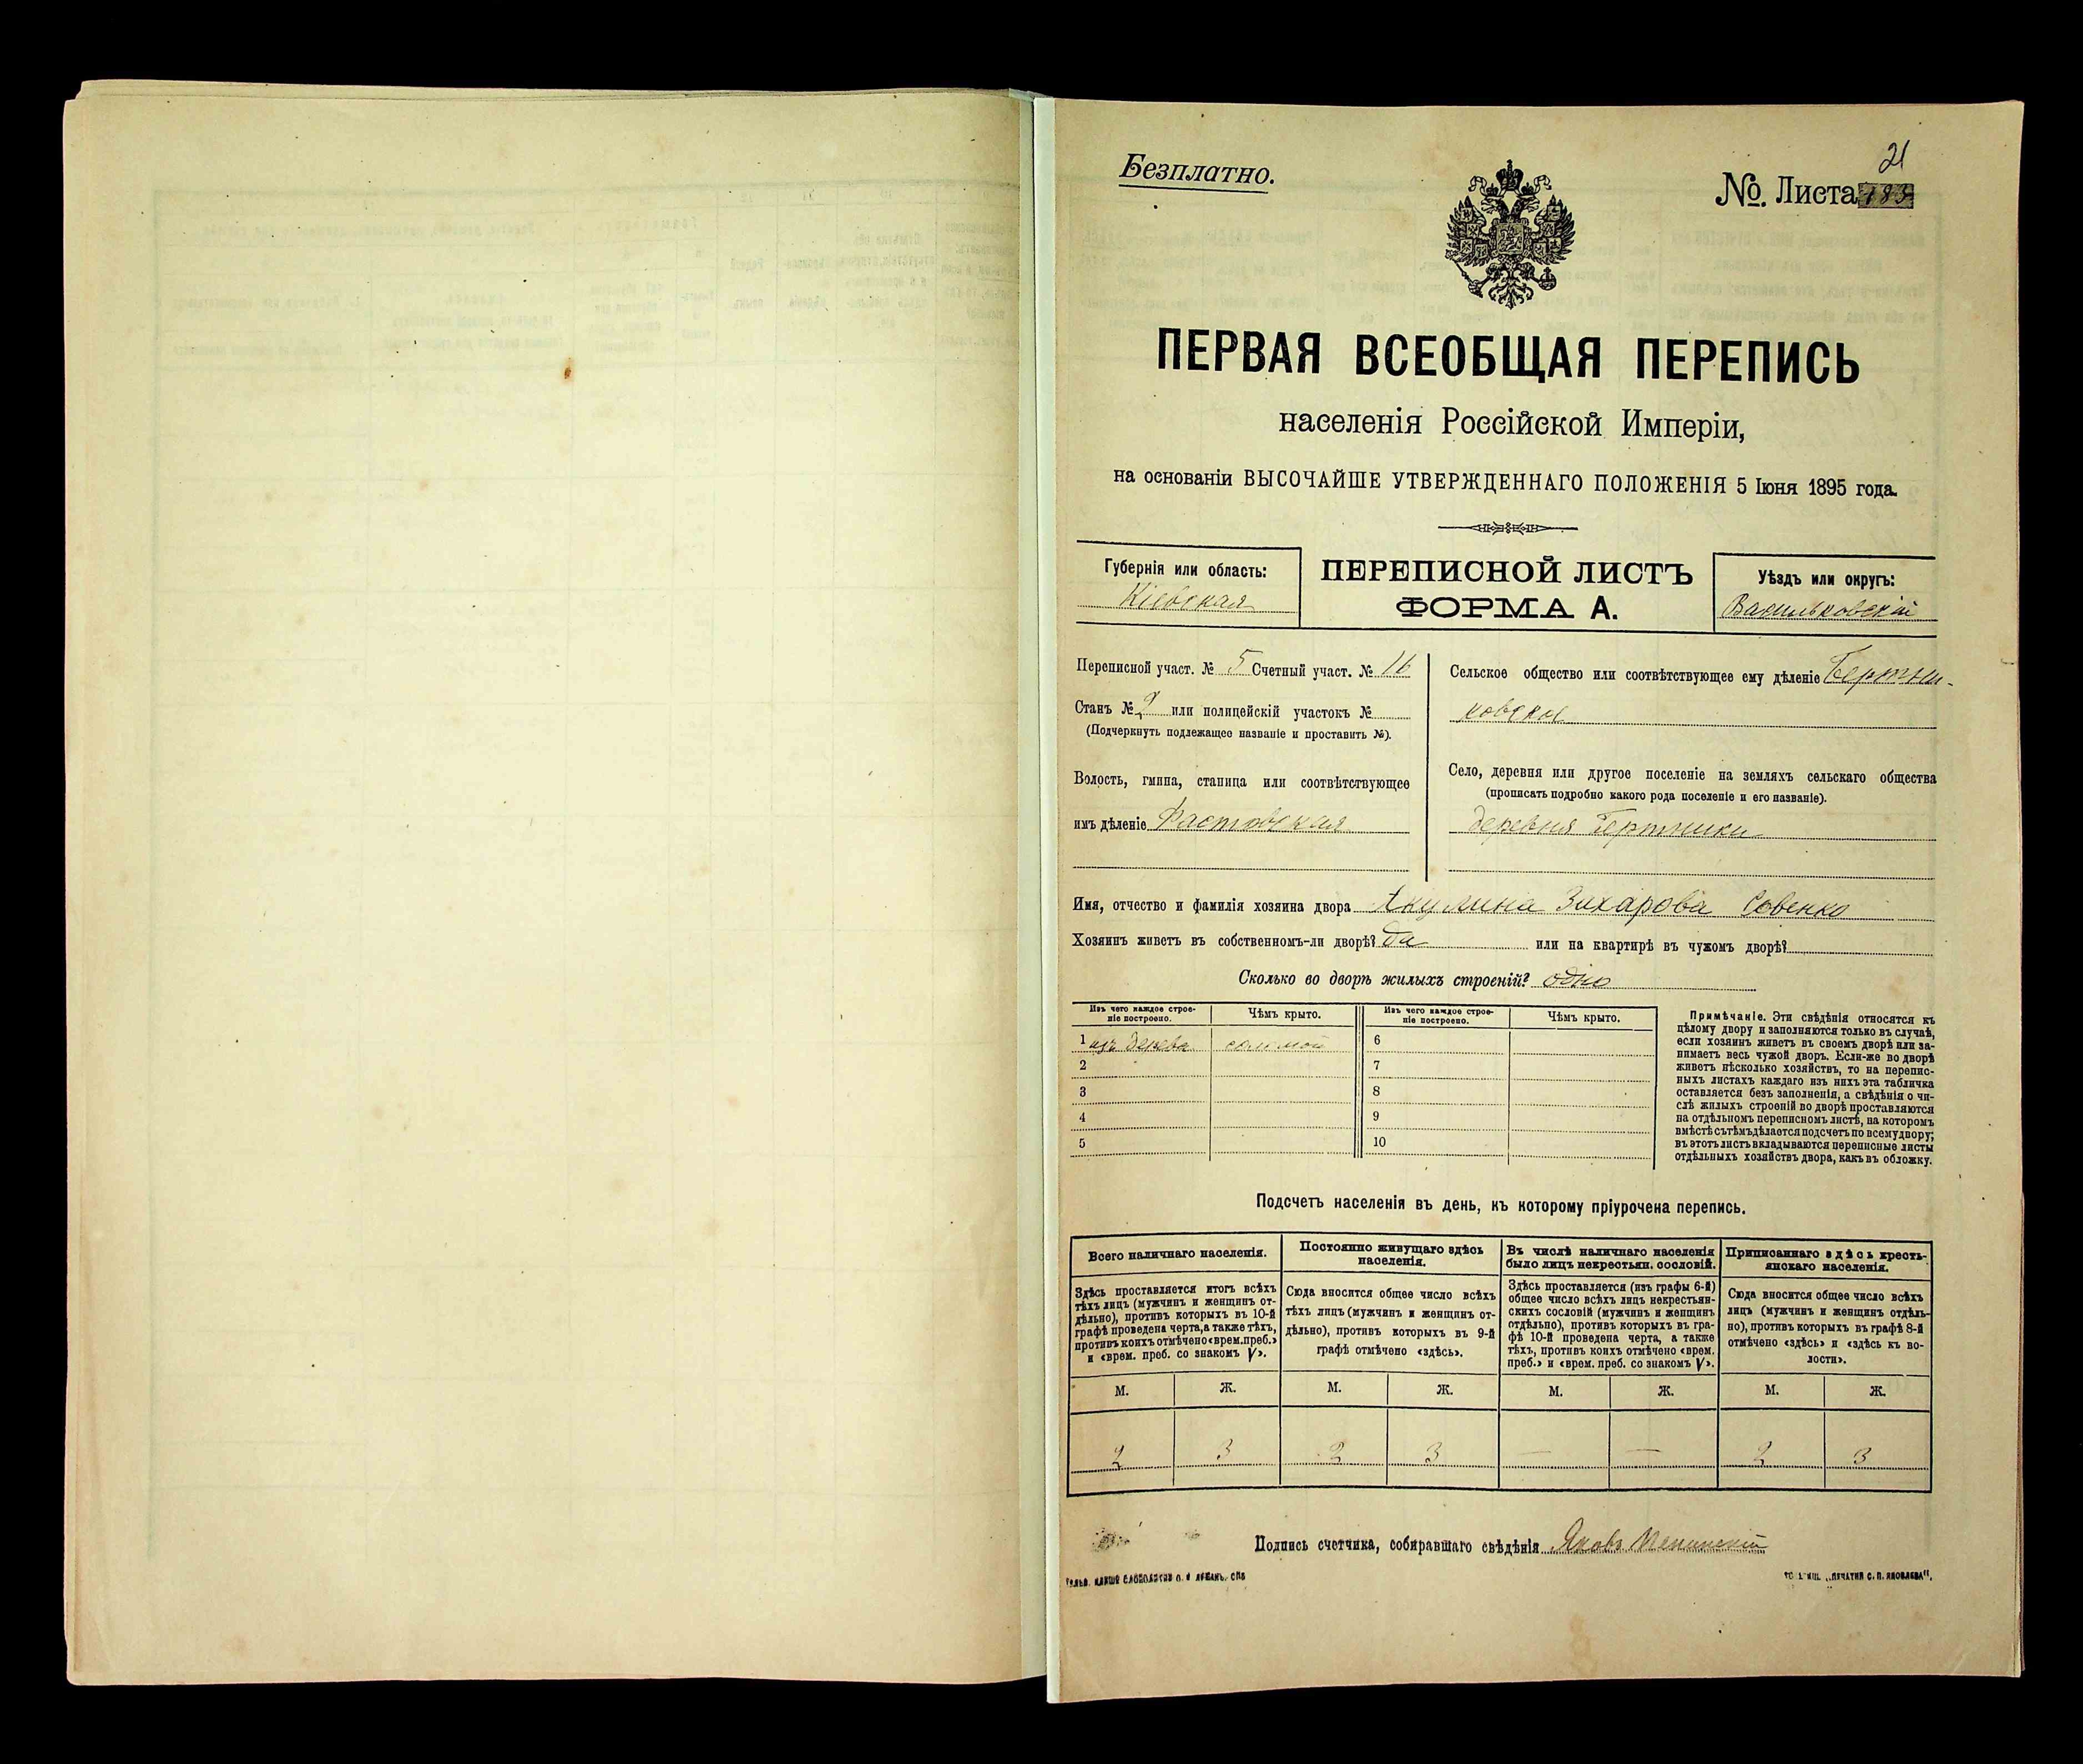 21
Безплатно.
№. Листа 183
ПЕРВАЯ ВСЕОБЩАЯ ПЕРЕПИСЬ
населенія Россійской Имперіи,
на основаніи ВЫСОЧАЙШЕ УТВЕРЖДЕННАГО ПОЛОЖЕНІЯ 5 Іюня 1895 года.
Губернія или область:
Кіевская
ПЕРЕПИСНОЙ ЛИСТЪ
ФОРМА А.
Уѣздъ или округъ:
Васильковскій
Переписной участ. № 5 Счетный участ. № 16
Станъ № 2 или полицейскій участокъ №
(Подчеркнуть подлежащее названіе и проставить №).
Волость, гмина, станица или соотвѣтствующее
имъ дѣленіе Фастовская
Сельское общество или соотвѣтствующее ему дѣленіе Бертни-
ковское
Село, деревня или другое поселеніе на земляхъ сельскаго общества
(прописать подробно какого рода поселеніе и его названіе).
деревня Бертники
Имя, отчество и фамилія хозяина двора Акулина Захарова Совенко
Хозяинъ живетъ въ собственномъ-ли дворѣ? да или на квартирѣ въ чужомъ дворѣ?
Сколько во дворѣ жилыхъ строеній? одно
Изъ чего каждое строе-
ніе построено.
Чѣмъ крыто.
Изъ чего каждое строе-
ніе построено.
Чѣмъ крыто.
1 изъ дерева соломой 6
2 7
3 8
4 9
5 10
Примѣчаніе. Эти свѣдѣнія относятся къ
цѣлому двору и заполняются только въ случаѣ,
если хозяинъ живетъ въ своемъ дворѣ или за-
нимаетъ весь чужой дворъ. Если-же во дворѣ
живетъ нѣсколько хозяйствъ, то на перепис-
ныхъ листахъ каждаго изъ нихъ эта табличка
оставляется безъ заполненія, а свѣдѣнія о чи-
слѣ жилыхъ строеній во дворѣ проставляются
на отдѣльномъ переписномъ листѣ, на которомъ
вмѣстѣ съ тѣмъ дѣлается подсчетъ по всему двору;
въ этотъ листъ вкладываются переписные листы
отдѣльныхъ хозяйствъ двора, какъ въ обложку.
Подсчетъ населенія въ день, къ которому пріурочена перепись.
Всего наличнаго населенія.
Постоянно живущаго здѣсь
населенія.
Въ числѣ наличнаго населенія
было лицъ некрестьян. сословій.
Приписаннаго здѣсь кресть-
янскаго населенія.
Здѣсь проставляется итогъ всѣхъ
тѣхъ лицъ (мужчинъ и женщинъ от-
дѣльно), противъ которыхъ въ 10-й
графѣ проведена черта, а также тѣхъ,
противъ коихъ отмѣчено «врем. преб.»
и «врем. преб. со знакомъ V».
Сюда вносится общее число всѣхъ
тѣхъ лицъ (мужчинъ и женщинъ от-
дѣльно), противъ которыхъ въ 9-й
графѣ отмѣчено «здѣсь».
Здѣсь проставляется (изъ графы 6-й)
общее число всѣхъ лицъ некрестьян-
скихъ сословій (мужчинъ и женщинъ
отдѣльно), противъ которыхъ въ гра-
фѣ 10-й проведена черта, а также
тѣхъ, противъ коихъ отмѣчено «врем.
преб.» и «врем. преб. со знакомъ V».
Сюда вносится общее число всѣхъ
лицъ (мужчинъ и женщинъ отдѣль-
но), противъ которыхъ въ графѣ 8-й
отмѣчено «здѣсь» и «здѣсь къ во-
лости».
М. Ж. М. Ж. М. Ж. М. Ж.
2 3 2 3 — — 2 3
Подпись счетчика, собиравшаго свѣдѣнія Яковъ